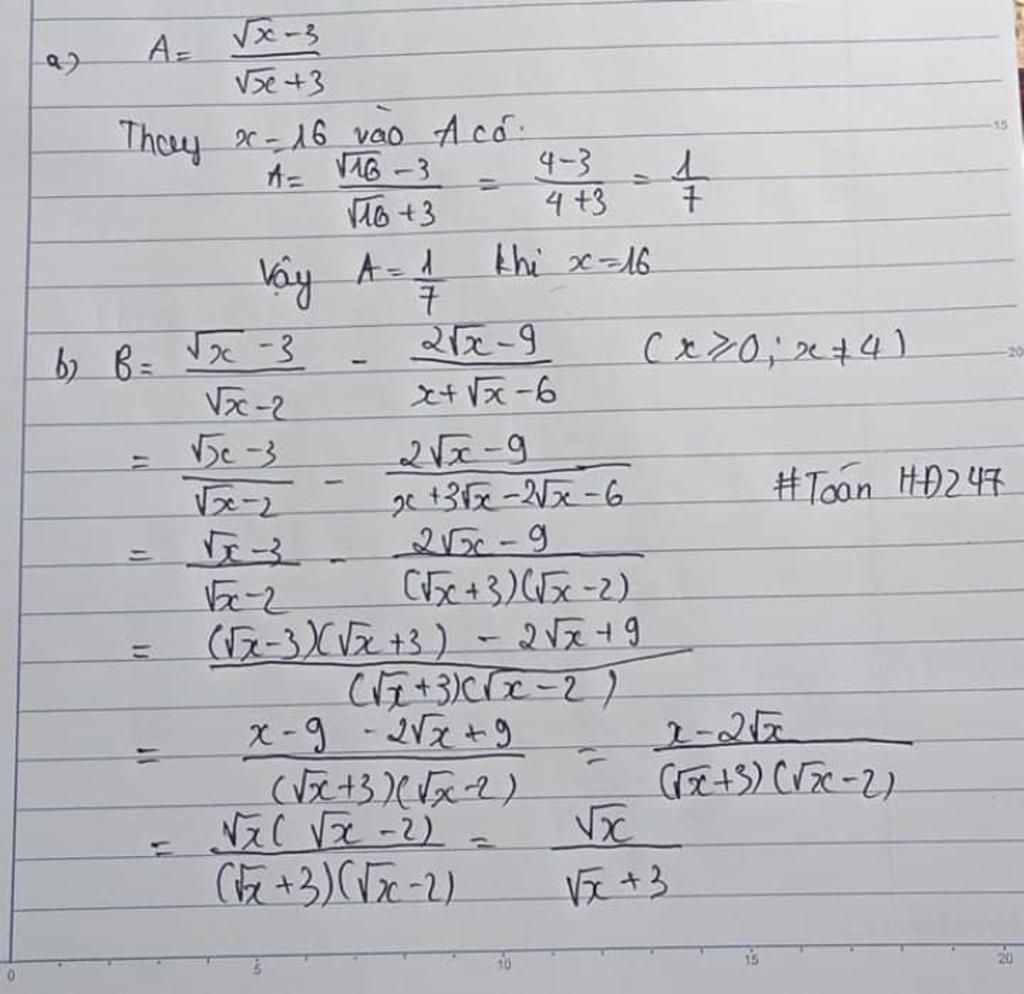 a) A = (√x - 3)/(√x + 3)
Thay x = 16 vào A có:
A = (√16 - 3)/(√16 + 3) = (4 - 3)/(4 + 3) = 1/7
Vậy A = 1/7 khi x = 16
b) B = (√x - 3)/(√x - 2) - (2√x - 9)/(x + √x - 6) (x ≥ 0; x ≠ 4)
= (√x - 3)/(√x - 2) - (2√x - 9)/(x + 3√x - 2√x - 6) #Toán HĐ247
= (√x - 3)/(√x - 2) - (2√x - 9)/((√x + 3)(√x - 2))
= ((√x - 3)(√x + 3) - 2√x + 9)/((√x + 3)(√x - 2))
= (x - 9 - 2√x + 9)/((√x + 3)(√x - 2)) = (x - 2√x)/((√x + 3)(√x - 2))
= (√x(√x - 2))/((√x + 3)(√x - 2)) = √x/(√x + 3)
15
20
0 5 10 15 20